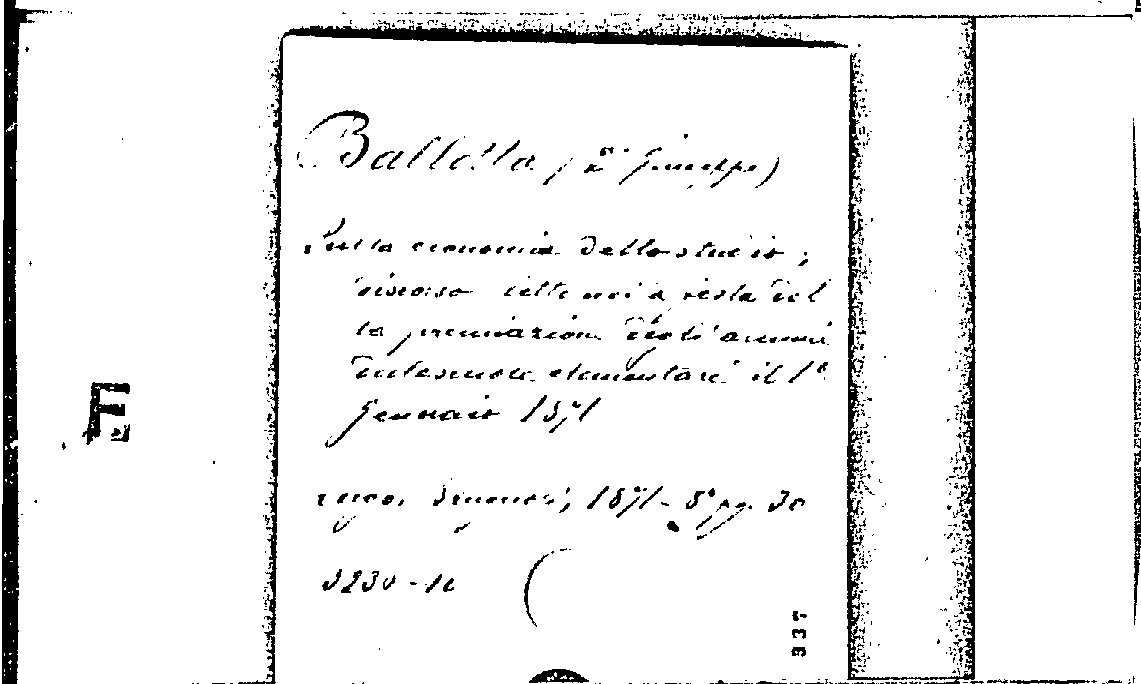 Ballotta (D.r Giuseppe)
Sulla economia dello studio;
discorso letto nella festa del
la premiazione degli alunni
delle scuole elementari il 1º
Gennaio 1871
1871 - 8º pg. 30
3230 - 16
337
E